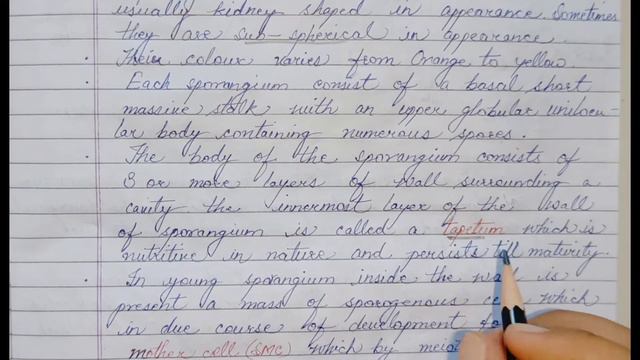 usually kidney shaped in appearance. Sometimes
they are sub-spherical in appearance.
Their colour varies from Orange to yellow.
Each sporangium consist of a basal short
massive stalk with an upper globular unilocu-
lar body containing numerous spores.
The body of the sporangium consists of
3 or more layers of wall surrounding a
cavity the innermost layer of the wall
of sporangium is called a tapetum which is
nutritive in nature and persists till maturity.
In young sporangium inside the wall is
present a mass of sporogenous which
in due course of development
mother cell (SMC) which by